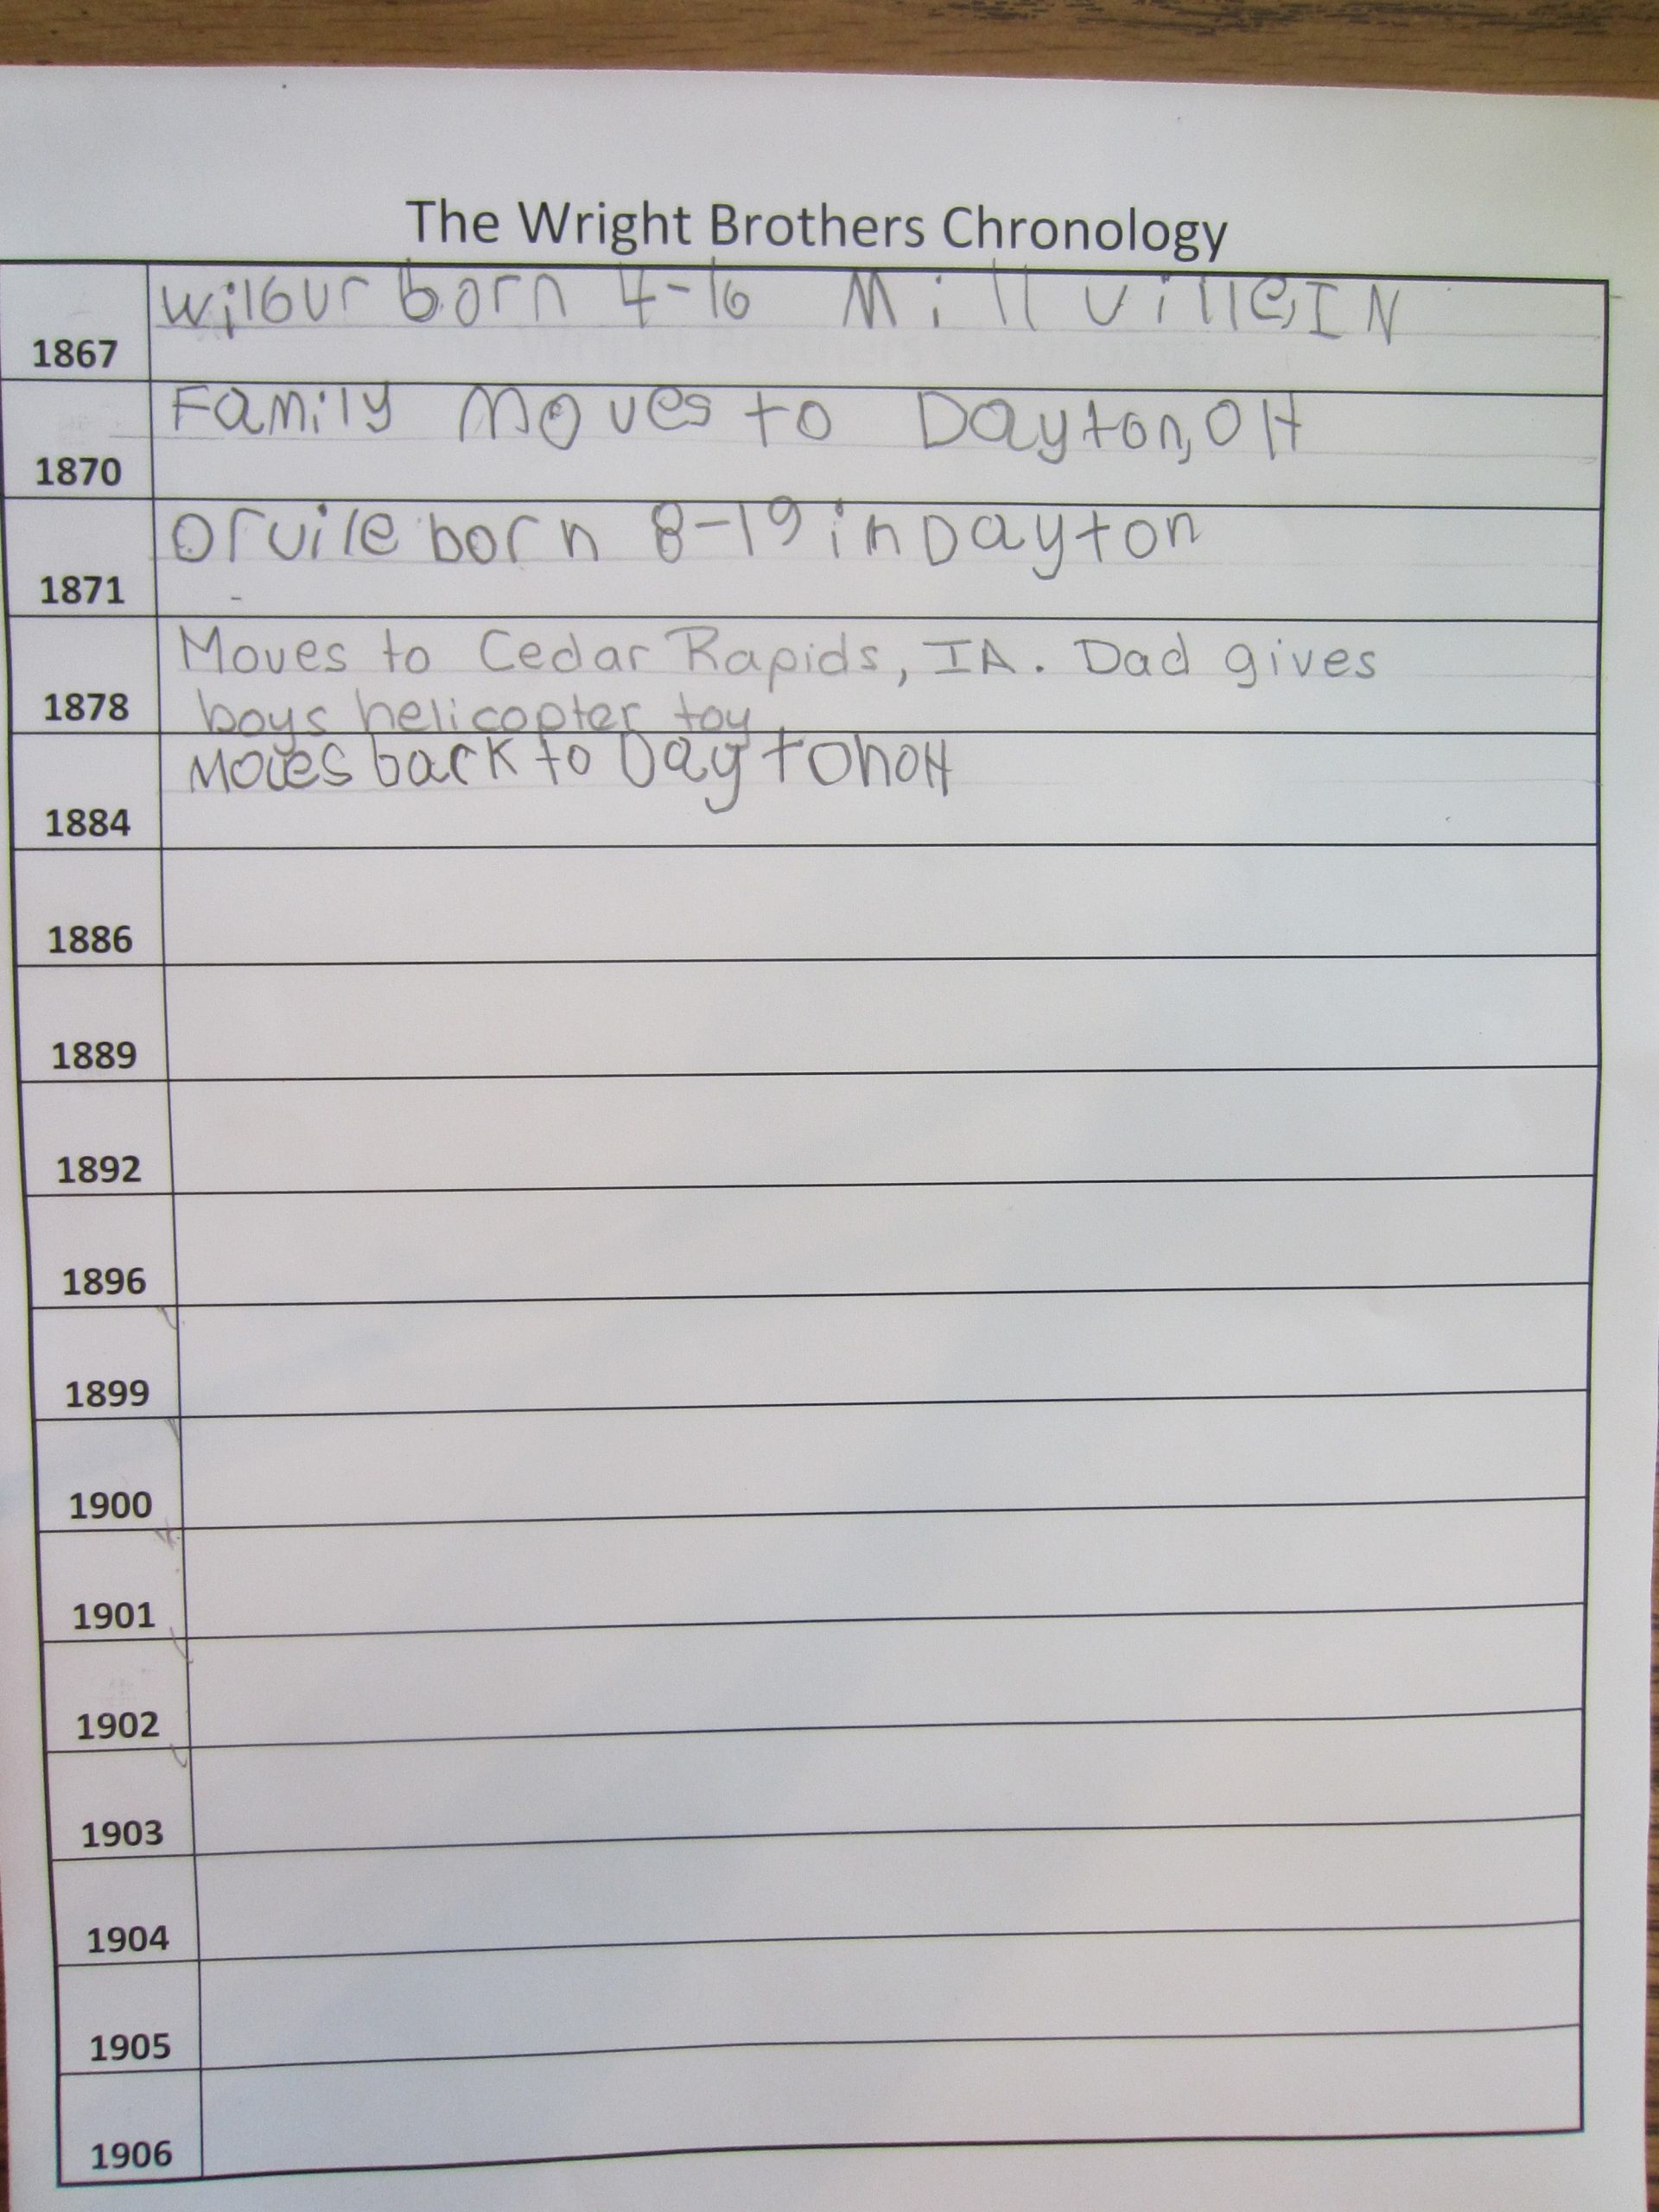 The Wright Brothers Chronology
1867 Wilbur born 4-16 Millville, IN
1870 Family Moves to Dayton, OH
1871 Orvile born 8-19 in Dayton
1878 Moves to Cedar Rapids, IA. Dad gives
boys helicopter toy
1884 Moves back to Dayton OH
1886
1889
1892
1896
1899
1900
1901
1902
1903
1904
1905
1906